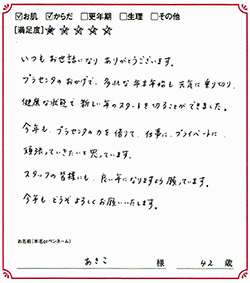 ☑お肌 ☑からだ □更年期 □生理 □その他
[満足度] ★ ★ ★ ★ ★
いつもお世話になり ありがとうございます。
プラセンタのおかげで、多忙な年末年始も 元気に乗り切り、
健康な状態で 新しい年のスタートを切ることができました。
今年も、プラセンタの力を借りて、仕事に、プライベートに、
頑張っていきたいと思っています。
スタッフの皆様にも、良い年になりますよう願っています。
今年も どうぞよろしくお願いいたします。
お名前(本名orペンネーム)
あきこ 様 42 歳